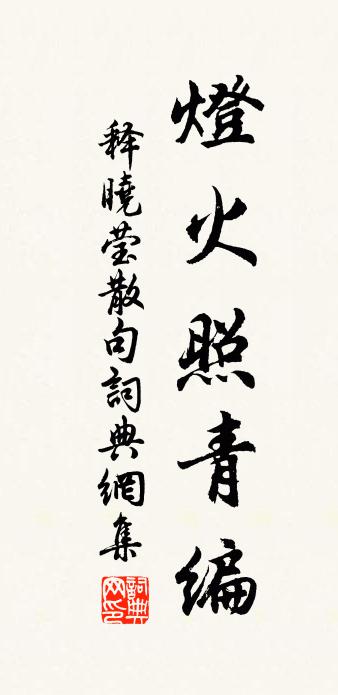 燈火照青編
释曉莹散句詞典網集
詞典网印